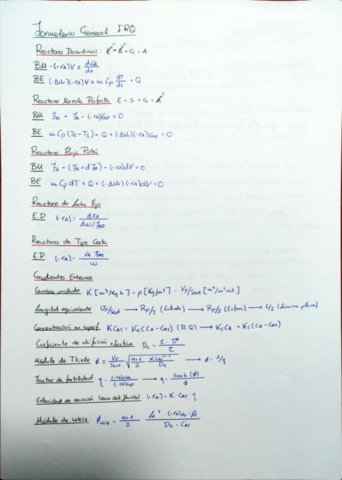 Formulario General IRQ
Reactores Discontinuos: E - S + G = A
BM -(-rA)V = dNA/dt
BE (-ΔHr)(-rA)V = m Cp dT/dt + Q
Reactores Mezcla Perfecta E - S + G = A
BM FA0 - FA - (-rA)V = 0
BE m Cp (TE - TS) + Q + (-ΔHr)(-rA) = 0
Reactores Flujo Pistón
BM FA - (FA + dFA) - (-rA)dV = 0
BE m Cp dT + Q + (-ΔHr)(-rA)dV = 0
Reactores de Lecho Fijo
E.D (-rA) = dXA / dW/FA0
Reactores de Tipo Cesta
E.D (-rA) = XA FA0 / W
Gradientes Externos
Cambio unidades K [m³/Kg h] · ρ [Kg/m³] · Vp/Sext [m³/m² cat]
Longitud equivalente Vp/Sext → Rp/2 (Cilindro) → Rp/3 (Esfera) → L/2 (Lámina plana)
Concentración en superf. K CAs = Kc (CA - CAs) (R.Q) → Kc CA = Kc (CA - CAs)
Coeficiente de difusión efectiva De = E · D / τ
Módulo de Thiele ϕ = Vp/Sext √(n+1/2 · K CAs^(n-1)/De) → ϕ = 3/η
Factor de eficacia η = (-rA)obs / (-rA)sup → η = tanh(ϕ) / ϕ
Velocidad de reacción (-rA) = K · CAs η
Módulo de Weisz ϕ = n+1/2 · Le² (-rA)obs · ρ / De · CAs